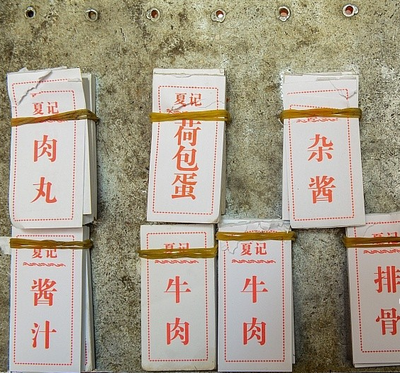 夏记
肉丸
夏记
荷包蛋
杂酱
夏记
酱汁
夏记
牛肉
夏记
牛肉
夏记
排骨